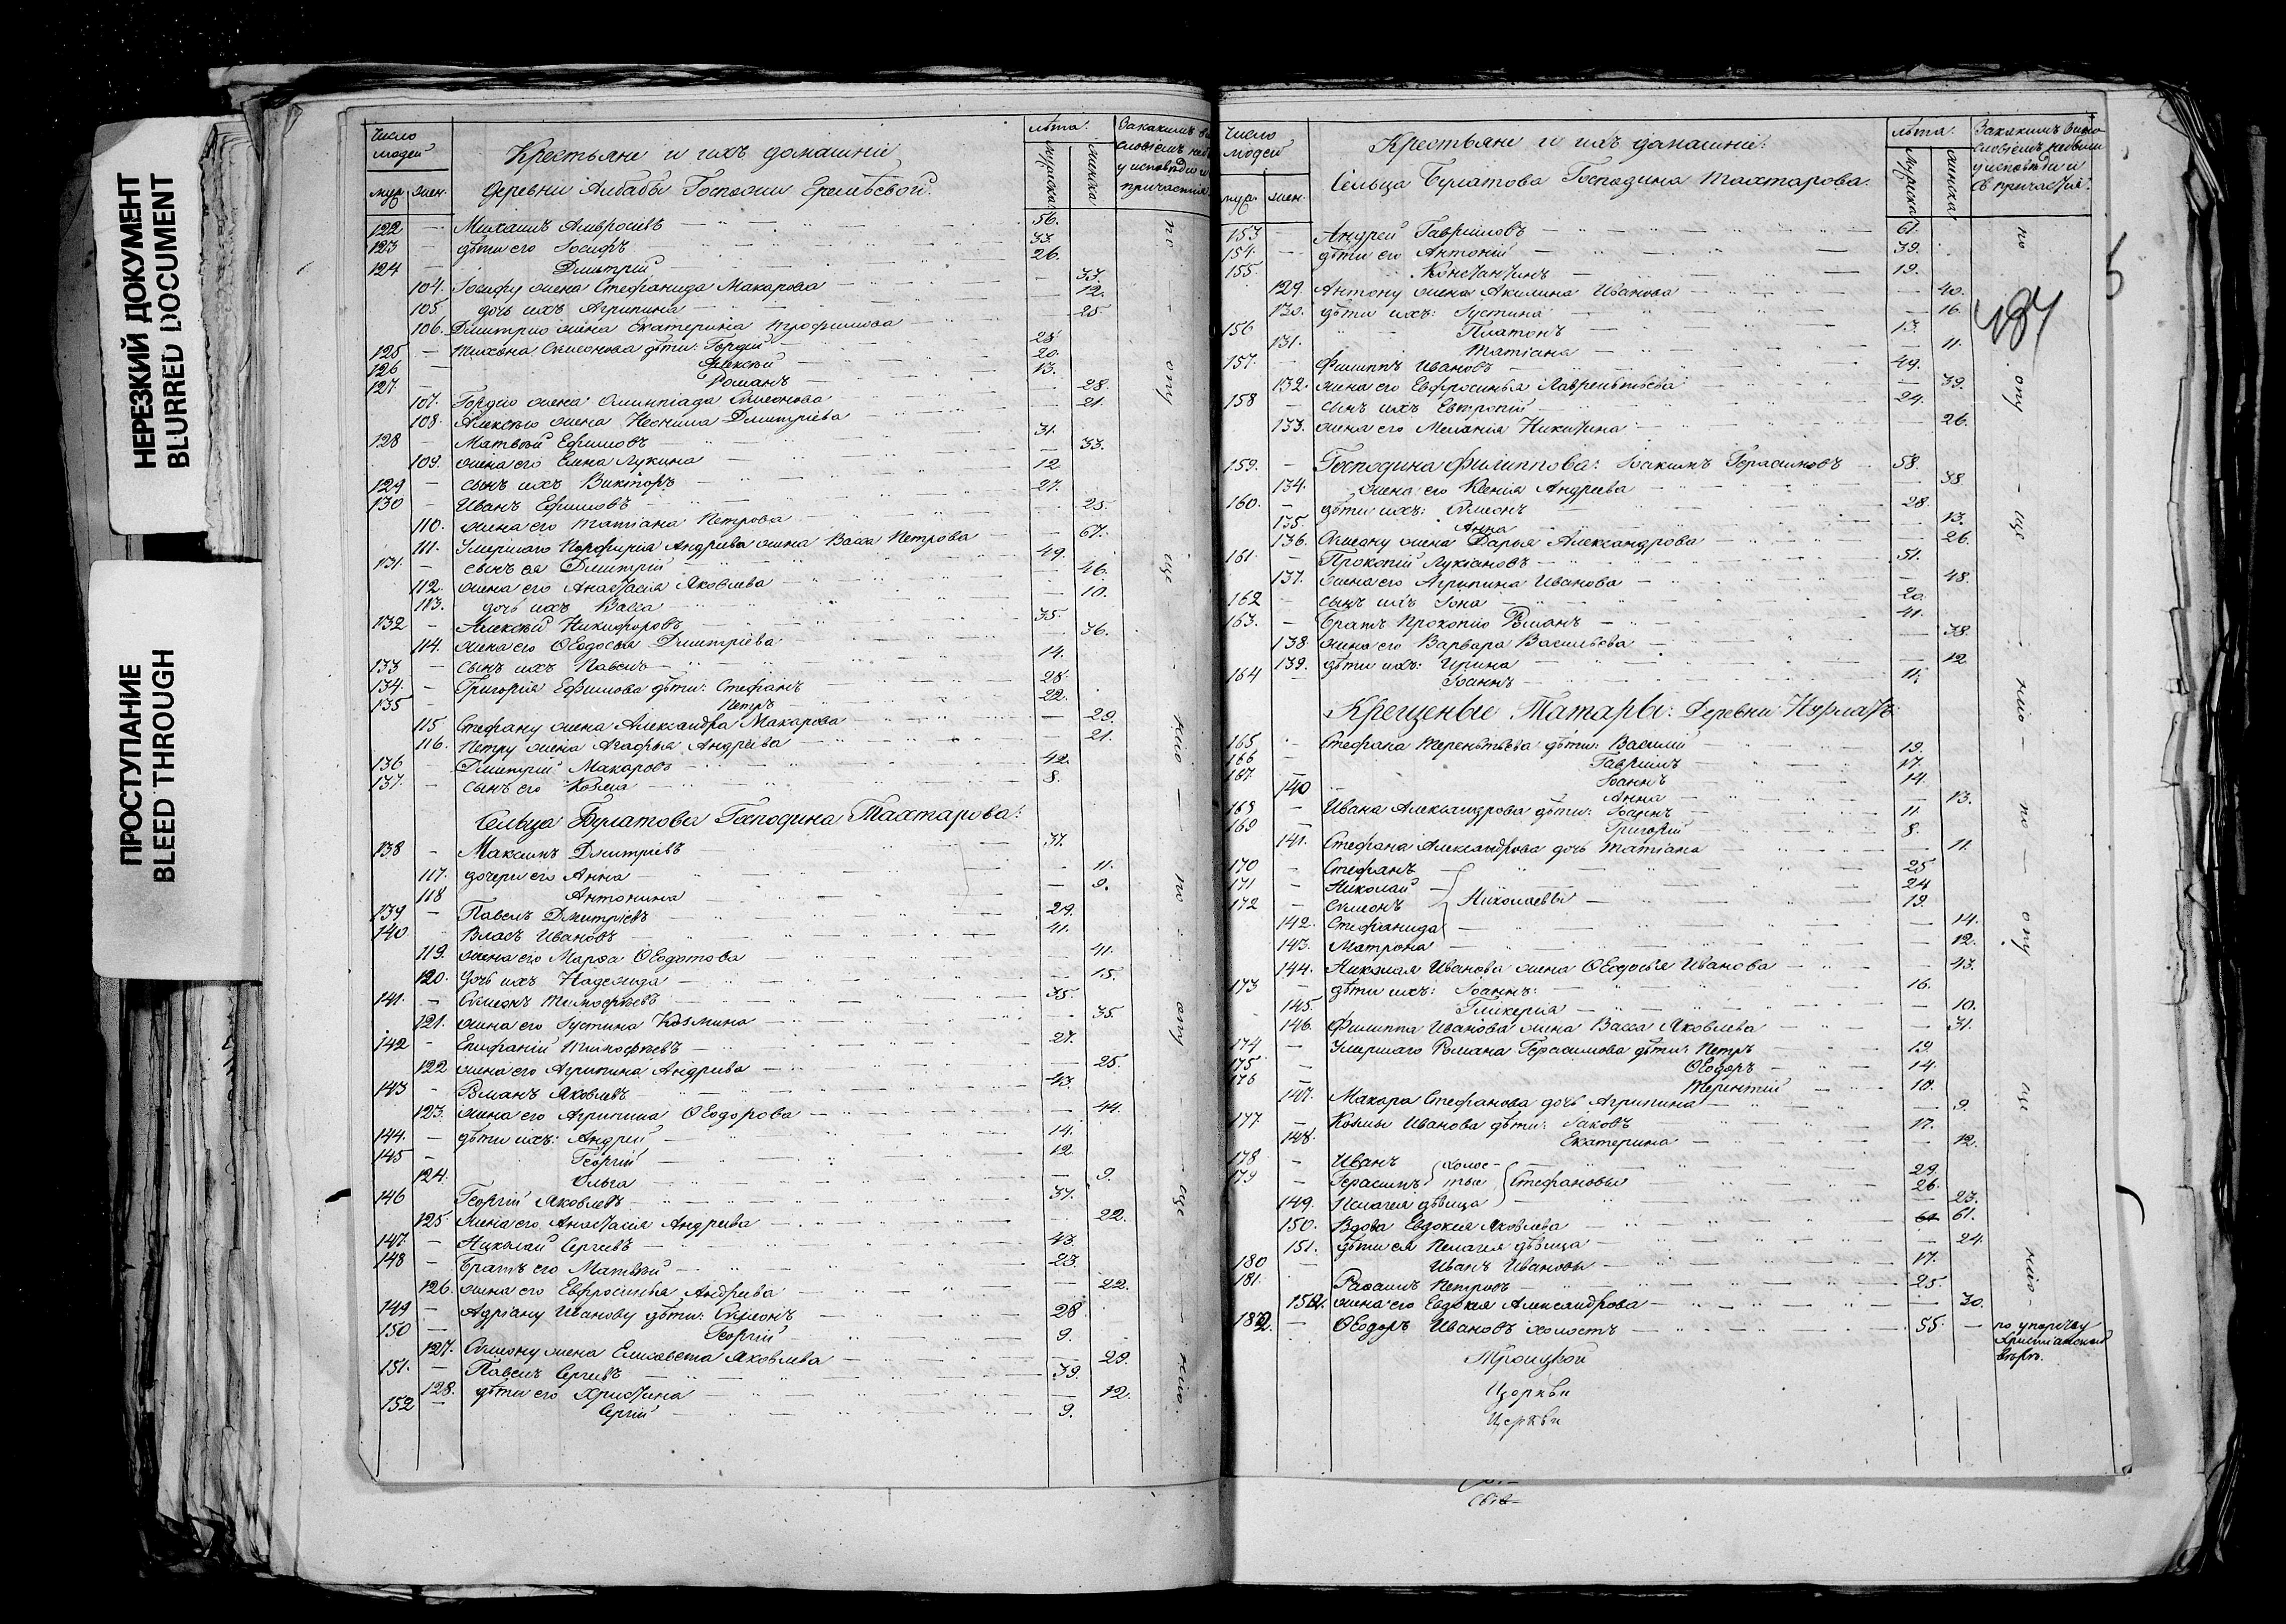 НЕРЕЗКИЙ ДОКУМЕНТ
BLURRED DOCUMENT
ПРОСТУПАНИЕ
BLEED THROUGH
Число людей
муж. жен.
Крестьяне и ихъ домашніе
Деревни Алвабы Госпожи
лѣта.
мужеска женска
122 — Михаилъ Амвросіевъ 56.
123 — дѣти его Іосифъ 33.
124 — Дмитрій 26.
104. Іосифу жена Стефанида Макарова — 33.
105. дочь ихъ Агрипина — 12.
106. Дмитрію жена Екатерина Трофимова 25
125 — Тихона Симеонова дѣти: Гордій 28
126 — Алексѣй 20.
127. — Романъ 13.
107. Гордію жена Олимпіада Симеонова — 28.
108. Алексѣю жена Неонила Дмитріева 21.
128 — Матвѣй Ефимовъ 31.
109. жена его Елена Лукина — 33.
129 — сынъ ихъ Викторъ 12
130 — Иванъ Ефимовъ 27.
110. жена его Татіана Петрова 25.
111. Умершаго Порфирія Андреева жена Васса Петрова — 67.
131. — сынъ ея Дмитрій 49.
112. жена его Анастасія Яковлева 46.
113. дочь ихъ Васса — 10.
132 — Алексѣй Никифоровъ 35.
114. жена его Ѳеодосья Дмитріева 36.
133 — сынъ ихъ Павелъ 14.
134. — Григорія Ефимова дѣти: Стефанъ 28.
135 — Петръ 22.
115 Стефану жена Александра Макарова — 29.
116. Петру жена Агафья Андреева — 21.
136 — Дмитрій Макаровъ 42.
137. — сынъ его Козма 8.
Сельца Булатова Господина Тахтарова:
138 — Максимъ Дмитріевъ 37.
117. дочери его Анна — 11.
118 Антонина — 9.
139 — Павелъ Дмитріевъ 29.
140 Власъ Ивановъ 41.
119. жена его Марѳа Ѳеодотова 41.
120. дочь ихъ Надежда — 15.
141. — Симеонъ Тимофѣевъ 35.
121. жена его Іустина Козмина — 35.
142 — Епифаній Тимофѣевъ 27.
122 жена его Агрипина Андреева — 25.
143 — Романъ Яковлевъ 43.
123. жена его Агрипина Ѳеодорова — 44.
144. — дѣти ихъ: Андрей 14.
145 — Георгій 12
124. Ольга — 9.
146 Георгій Яковлевъ 37.
125. жена его Анастасія Андреева 22.
147. — Николай Сергѣевъ 43.
148 — Братъ его Матвѣй 23.
126. жена его Евфросинья Андреева — 22.
149 — Адріану Иванову дѣти: Симеонъ 28
150 — Георгій 9.
127. Симеону жена Елисавета Яковлева — 29.
151. — Павелъ Сергѣевъ 39.
128. дѣти его Христина — 12.
152 — Сергій 9.
по — ону — же
Число людей
муж. жен.
Крестьяне и ихъ домашніе:
Сельца Булатова Господина Тахтарова.
лѣта.
мужеска женска
За какимъ вино
словіемъ небыли
у исповѣди и
Св причастія.
187
153 — Андрей Гавриловъ 61.
154. — дѣти его Антоній 39.
155. Константинъ 19.
129 Антону жена Акилина Иванова — 40.
130. дѣти ихъ: Іустина — 16.
156 Платонъ 13.
131. Татіана — 11.
157. Филиппъ Ивановъ 49.
132. жена его Евфросинья Лаврентьева — 39.
158 — сынъ ихъ Евтропій 24.
133. жена его Меланія Никитина — 26.
159. — Господина Филиппова: Іоакимъ Герасимовъ 58.
134. жена его Ксенія Андреева — 58
160. — дѣти ихъ: Симеонъ 28.
135. Анна — 13.
136. Симеону жена Дарья Александрова — 26.
161. — Прокопій Лукіановъ 51.
137. жена его Агрипина Иванова — 48.
162 — сынъ ихъ Іона 20.
163. — Братъ Прокопію Романъ 41.
138 жена его Варвара Васильева — 38.
139. дѣти ихъ: Ирина — 12
164 — Іоаннъ 11.
Крещеные Татары: Деревни Нурлатъ.
165 — Стефана Терентьева дѣти: Василій 19.
166 — Гавріилъ 17.
167. — Іоаннъ 14.
140 Анна — 13.
168 — Ивана Александрова дѣти: Іоаннъ 11.
169 — Григорій 8.
141. Стефана Александрова дочь Татіана — 11.
170 — Стефанъ 25
171 — Николай 24
172 — Симеонъ Николаевы 19.
142. Стефанида — 14.
143. Матрона — 12.
144. Николая Иванова жена Ѳеодосья Иванова — 43.
173 — дѣти ихъ: Іоаннъ: 16.
145. Гликерія — 10.
146. Филиппа Иванова жена Васса Яковлева — 31.
174 — Умершаго Романа Герасимова дѣти: Петръ 19.
175 — Ѳеодоръ 14.
176 — Терентій 10.
147. Макара Стефанова дочь Агрипина — 9.
177. — Козмы Иванова дѣти: Іаковъ 17.
148. Екатерина — 12.
178 — Иванъ холос- 29.
179 — Герасимъ тые Стефановы 26.
149. Пелагея дѣвица — 23.
150. Вдова Евдокея Яковлева 61 61.
151. дѣти ея Пелагея дѣвица — 24.
180 — Иванъ Ивановы 17.
181. Рафаилъ Петровъ 25.
152. жена его Евдокея Александрова — 30.
182. — Ѳеодоръ Ивановъ холостъ 55. —
по — ону — же
Троицкой
Церкви
Церкви